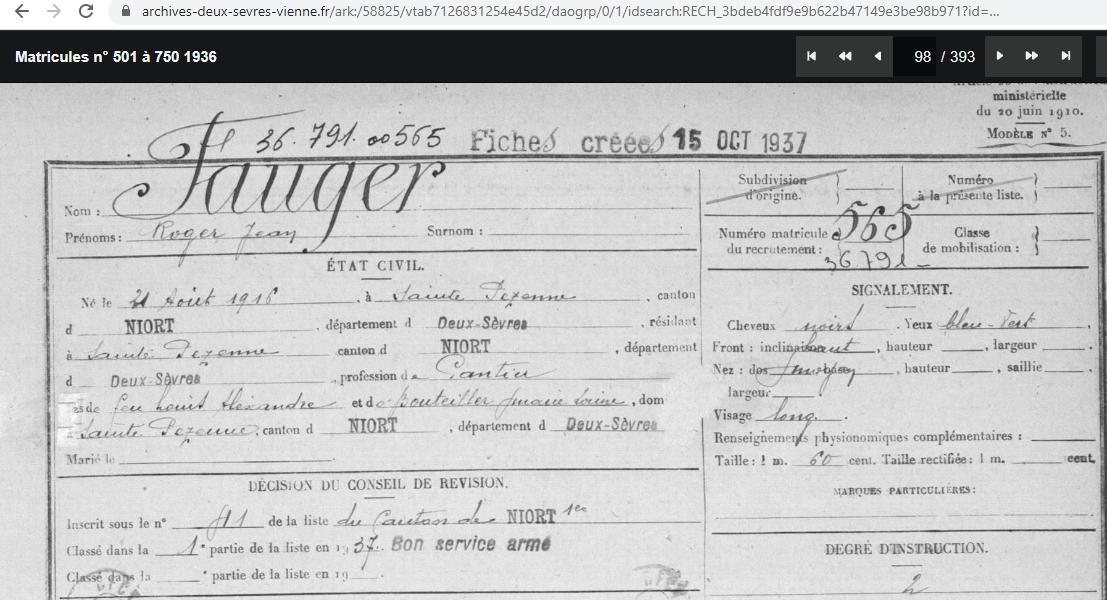 archives-deux-sevres-vienne.fr/ark:/58825/vtab7126831254e45d2/daogrp/0/1/idsearch:RECH_3bdeb4fdf9e9b622b47149e3be98b971?id=...
Matricules n° 501 à 750 1936
98 / 393
ministérielle
du 20 juin 1910.
MODÈLE N° 5.
36.791.00565 Fiches créées 15 OCT 1937
Nom : Fauger
Prénoms : Roger Jean Surnom :
ÉTAT CIVIL.
Né le 21 Août 1916, à Sainte Pezenne, canton
d NIORT, département d Deux-Sèvres, résidant
à Sainte Pezenne canton d NIORT, département
d Deux-Sèvres, profession de
de feu Louis Alexandre et de Bouteiller, dom
à Sainte Pezenne, canton d NIORT, département d Deux-Sèvres
Marié le
DÉCISION DU CONSEIL DE REVISION.
Inscrit sous le n° 41 de la liste du Canton de NIORT 1er
Classé dans la 1e partie de la liste en 1937. Bon service armé
Classé dans la e partie de la liste en 19
Subdivision d'origine.
Numéro à la présente liste.
Numéro matricule du recrutement : 565
36791
Classe de mobilisation :
SIGNALEMENT.
Cheveux noirs. Yeux bleu-vert,
Front : inclinaison, hauteur, largeur.
Nez : dos, hauteur, saillie,
largeur
Visage long.
Renseignements physionomiques complémentaires :
Taille : 1 m. 60 cent. Taille rectifiée : 1 m. cent.
MARQUES PARTICULIÈRES :
DEGRÉ D'INSTRUCTION.
2